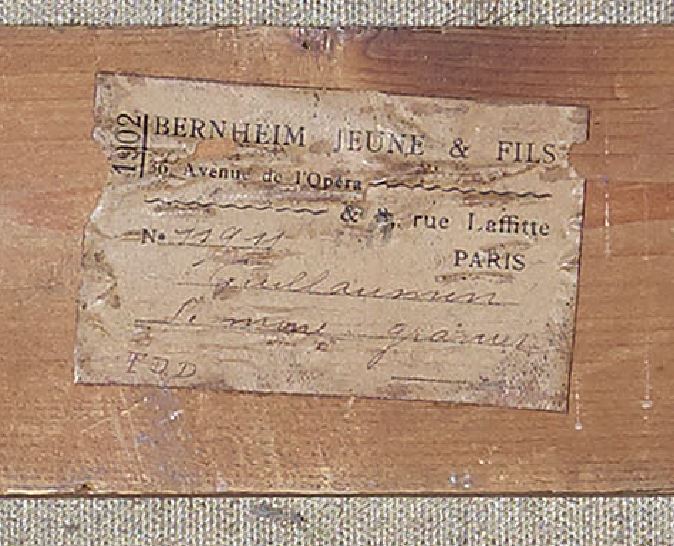 1902
BERNHEIM JEUNE & FILS
36, Avenue de l'Opéra
& 8, rue Laffitte
PARIS
No 11911
Guillaumin